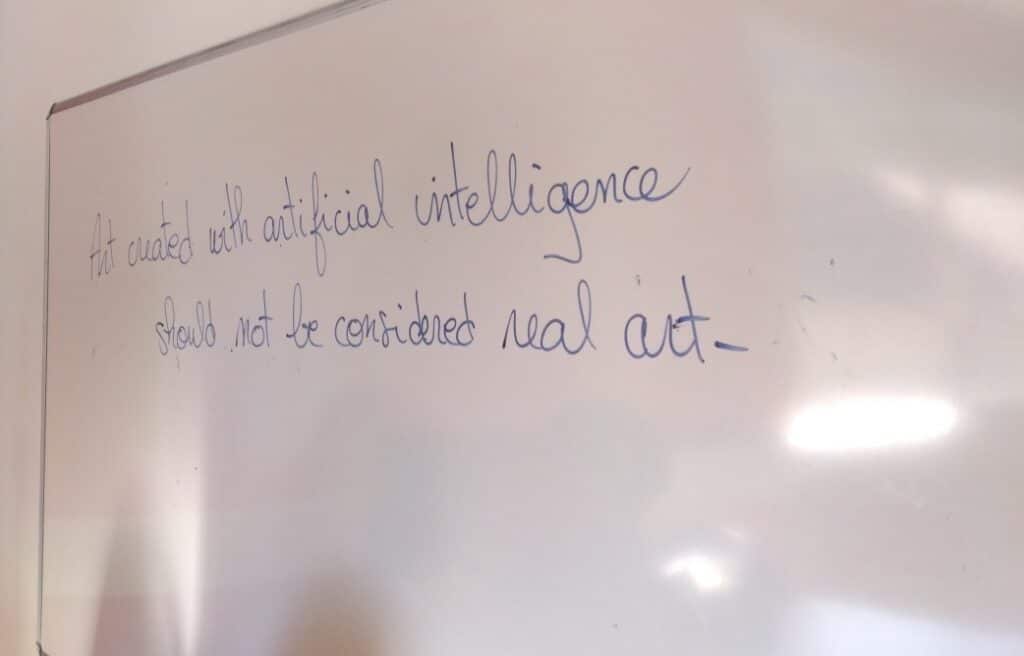 Art created with artificial intelligence
should not be considered real art-